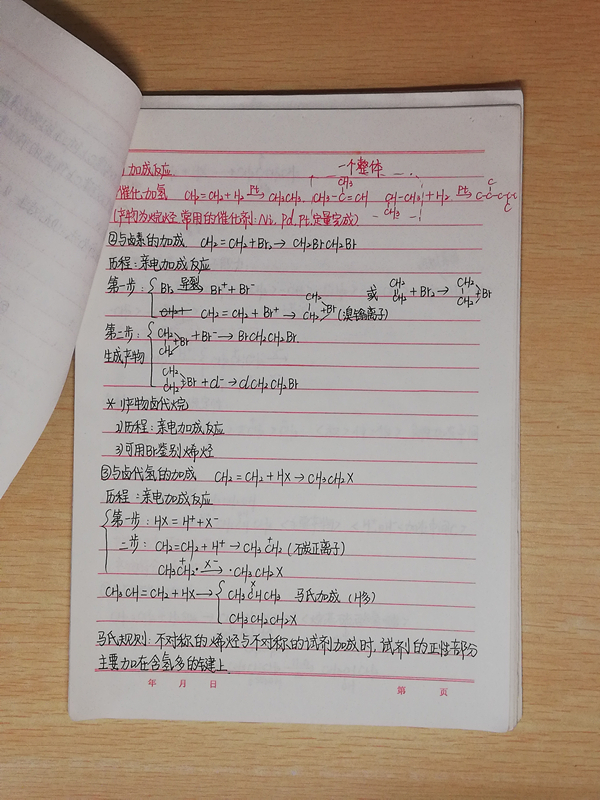 加成反应
一个整体
催化加氢 CH₂=CH₂+H₂ →(Pt) CH₃CH₃. CH₃-C(CH₃)=CH CH-CH₃(CH₃) +H₂ →(Pt) C-C-C-C
(产物为烷烃,常用的催化剂:Ni, Pd, Pt, 定量完成)
②与卤素的加成 CH₂=CH₂+Br₂→ CH₂BrCH₂Br
历程:亲电加成反应
第一步: Br₂ →(异裂) Br⁺+Br⁻ 或 CH₂ CH₂ +Br₂→ CH₂ CH₂ Br
CH₂=CH₂+Br⁺→ CH₂ CH₂ Br (溴鎓离子)
第二步: CH₂ CH₂ Br +Br⁻→BrCH₂CH₂Br.
生成产物
CH₂ CH₂ Br + Cl⁻→ClCH₂CH₂Br
※ 1)产物卤代烷
2)历程:亲电加成反应
3)可用Br鉴别烯烃
③与卤代氢的加成 CH₂=CH₂+HX→CH₃CH₂X
历程:亲电加成反应
第一步:HX=H⁺+X⁻
二步: CH₂=CH₂+H⁺→CH₃C⁺H₂ (碳正离子)
CH₃C⁺H₂· →(X⁻) ·CH₃CH₂X
CH₃CH=CH₂+HX→ CH₃CHCH₃ X 马氏加成 (H多)
CH₃CH₂CH₂X
马氏规则:不对称的烯烃与不对称的试剂加成时,试剂的正性部分
主要加在含氢多的双键上.
年 月 日 第 页